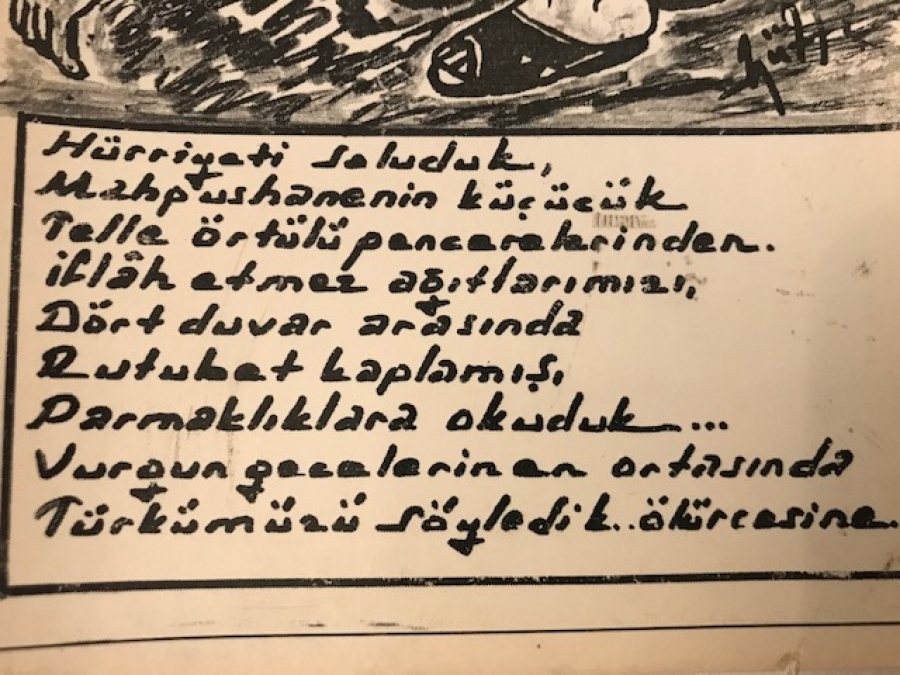 Hürriyeti soluduk,
Mahpushanenin küçücük
Telle örtülü pencerelerinden.
iflâh etmez ağıtlarımızı,
Dört duvar arasında
Rutubet kaplamış,
Parmaklıklara okuduk...
Vurgun gecelerinen ortasında
Türkümüzü söyledik..ölürcesine.